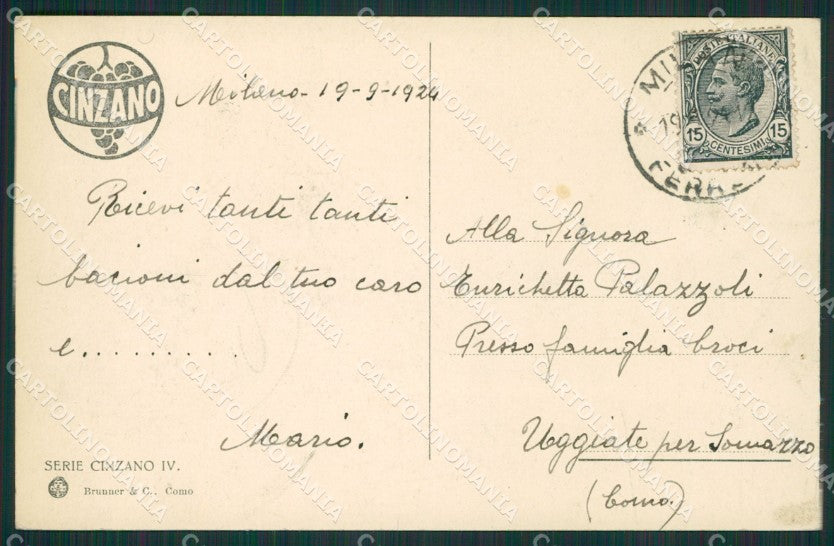 CINZANO
Milano - 19-9-1924
Ricevi tanti tanti
bacioni dal tuo caro
e..........
Mario.
SERIE CINZANO IV.
Brunner & C., Como
POSTE ITALIANE
15 CENTESIMI 15
MILANO
19
FERR
Alla Signora
Enrichetta Palazzoli
Presso famiglia Croci
Uggiate per Somazzo
(Como.)
CARTOLINOMANIA